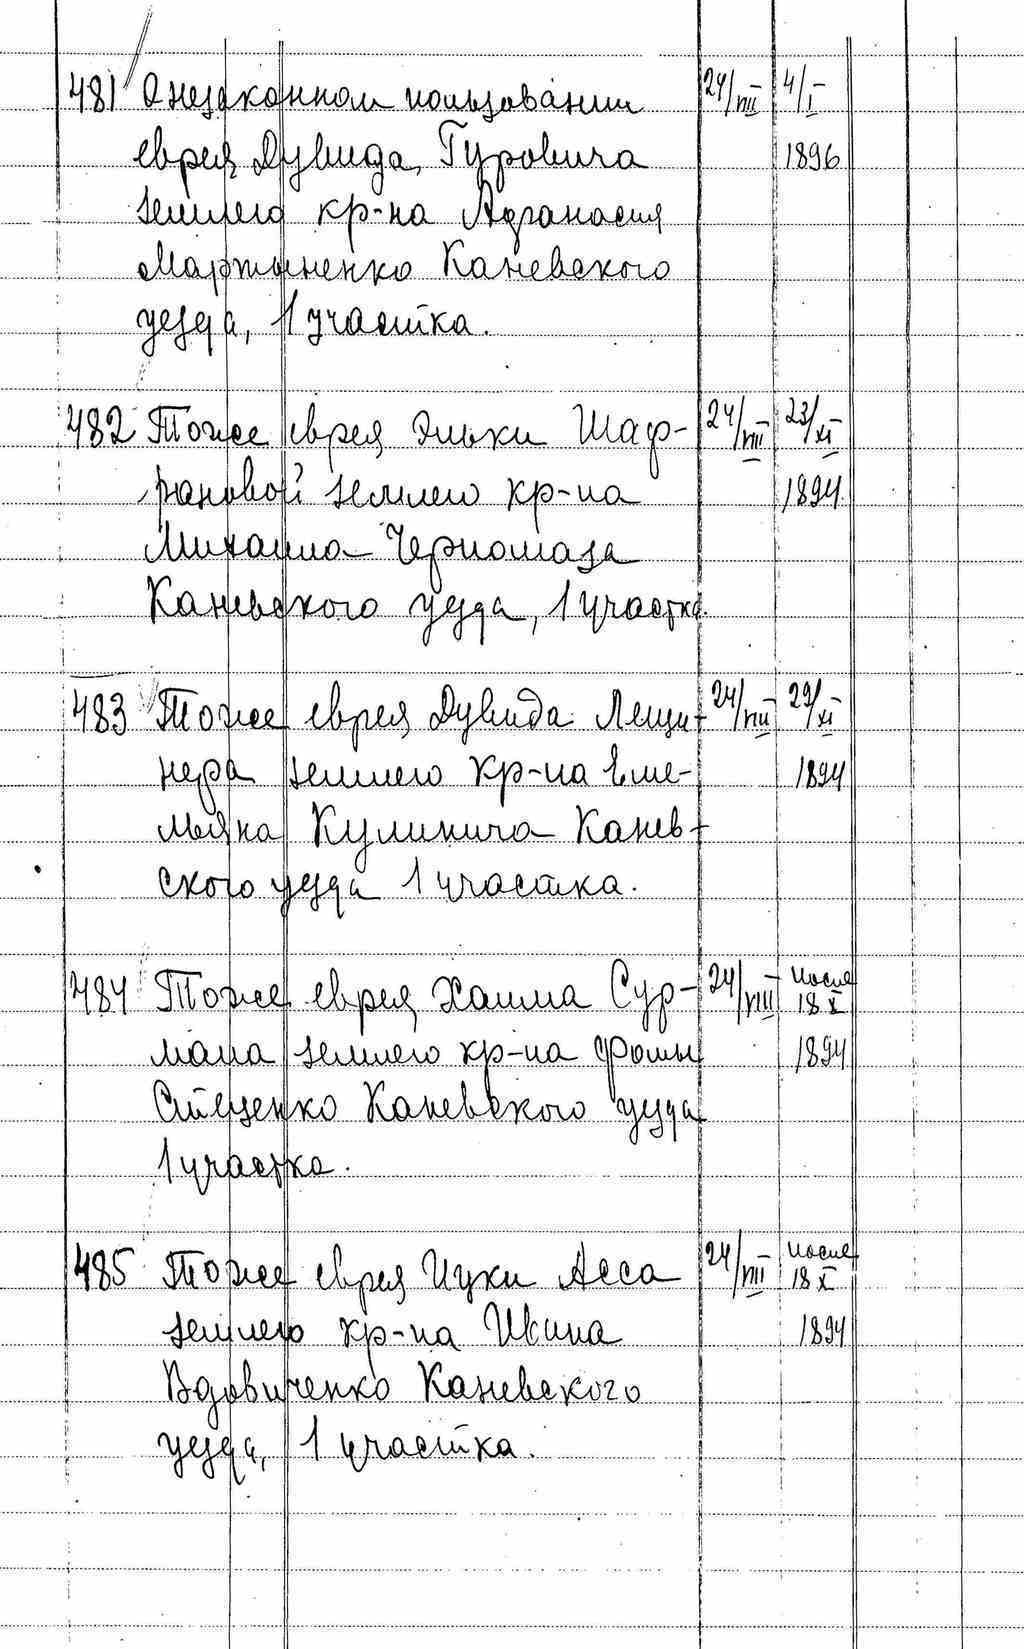 481 О незаконном пользовании 24/VIII 4/I
еврея Дувида Гуровича 1896
землею кр-на Афанасия
Мартыненко Каневского
уезда, 1 участка.
482 Тоже еврея Эльки Шаф- 24/VIII 23/XI
рановой землею кр-на 1894
Михаила Черномаза
Каневского уезда, 1 участка.
483 Тоже еврея Дувида Лещи- 24/VIII 29/XI
нера землею кр-на Еме- 1894
льяна Кулинича Канев-
ского уезда 1 участка.
484 Тоже еврея Хаима Сур- 24/VIII после 18 X
мана землею кр-на Фомы 1894
Стеценко Каневского уезда
1 участка.
485 Тоже еврея Ицки Асса 24/VIII после 18 X
землею кр-на Ивана 1894
Вдовиченко Каневского
уезда, 1 участка.